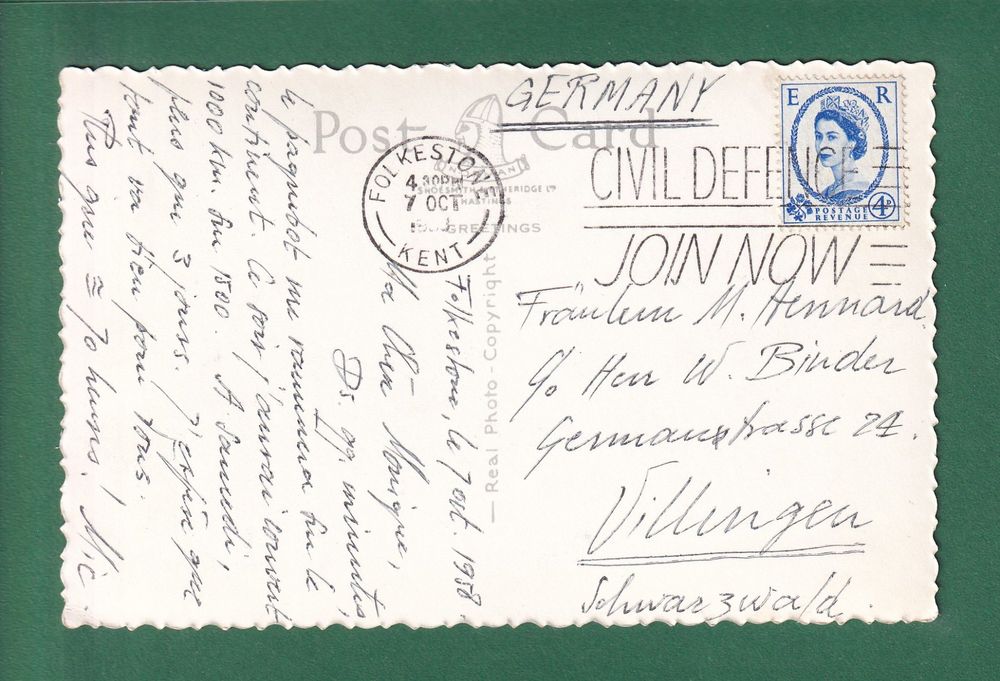 GERMANY
Post Card
FOLKESTONE
4 30PM
7 OCT
KENT
SHOESMITH & ETHERIDGE LTD
HASTINGS
GREETINGS
CIVIL DEFENCE
JOIN NOW
E R
POSTAGE
REVENUE
4D
— Real Photo - Copyright —
Fräulein M. Hennard.
c/o Herr W. Binder
Germanstrasse 24.
Villingen
Schwarzwald.
Folkestone, le 7 oct. 1958.
Ma chère Monique,
Ds. 90 minutes,
le paquebot me ramènera sur le
continent. Ce soir j'aurai couvert
1000 km. sur 1500. A Samedi,
plus que 3 jours. J'espère que
tout va bien pour tous.
Plus que ≅ 70 heures! Mic.